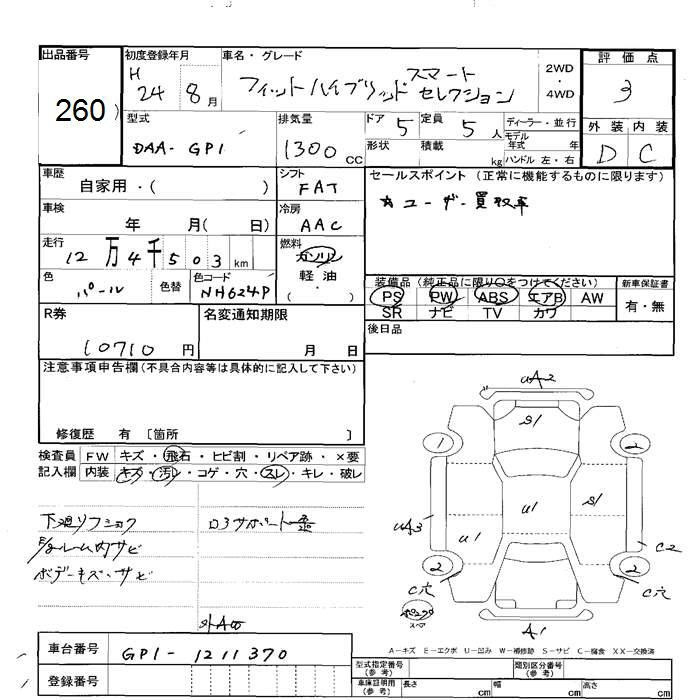 出品番号
260
初度登録年月
H
24 8月
車名・グレード
フィットハイブリッド スマート
セレクション
2WD
・
4WD
評価点
3
外装 内装
D C
型式
DAA- GP1
排気量
1300 CC
ドア 5
定員 5 人
形状
積載 kg
ディーラー・並行
モデル
年式 年
ハンドル 左・右
車歴
自家用・( )
シフト
FAT
セールスポイント(正常に機能するものに限ります)
☆ユーザー買取車
車検
年 月( 日)
冷房
AAC
走行
12万4千503 km
燃料
ガソリン
軽油
( ・ )
色
パール
色替
色コード
NH624P
装備品(純正品に限り○をつけてください)
PS PW ABS エアB AW
SR ナビ TV カワ
新車保証書
有・無
R券
10710 円
名変通知期限
月 日
後日品
注意事項申告欄(不具合内容等は具体的に記入して下さい)
修復歴 有 〔箇所 〕
検査員
記入欄
FW キズ・飛石・ヒビ割・リペア跡・×要
内装 キズ・汚レ・コゲ・穴・スレ・キレ・破レ
下廻リフショク
ロアサポート歪
ボデーキズ・サビ
車台番号
GP1- 1211370
登録番号
UA2
S1
1
2
UA3
U1
U1
S1
C2
2
2
C穴
C穴
スペア
A1
A-キズ E-エクボ U-凹み W-補修跡 S-サビ C-腐食 XX-交換済
型式指定番号
(参考)
類別区分番号
(参考)
車庫証明用
(参考)
長さ cm
幅 cm
高さ cm